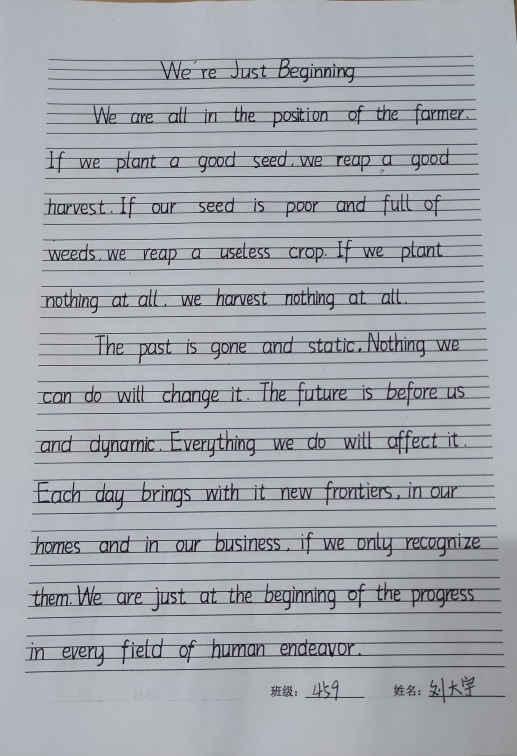 We're Just Beginning
We are all in the position of the farmer.
If we plant a good seed, we reap a good
harvest. If our seed is poor and full of
weeds, we reap a useless crop. If we plant
nothing at all, we harvest nothing at all.
The past is gone and static. Nothing we
can do will change it. The future is before us
and dynamic. Everything we do will affect it.
Each day brings with it new frontiers, in our
homes and in our business, if we only recognize
them. We are just at the beginning of the progress
in every field of human endeavor.
班级: 459 姓名: 刘大宇